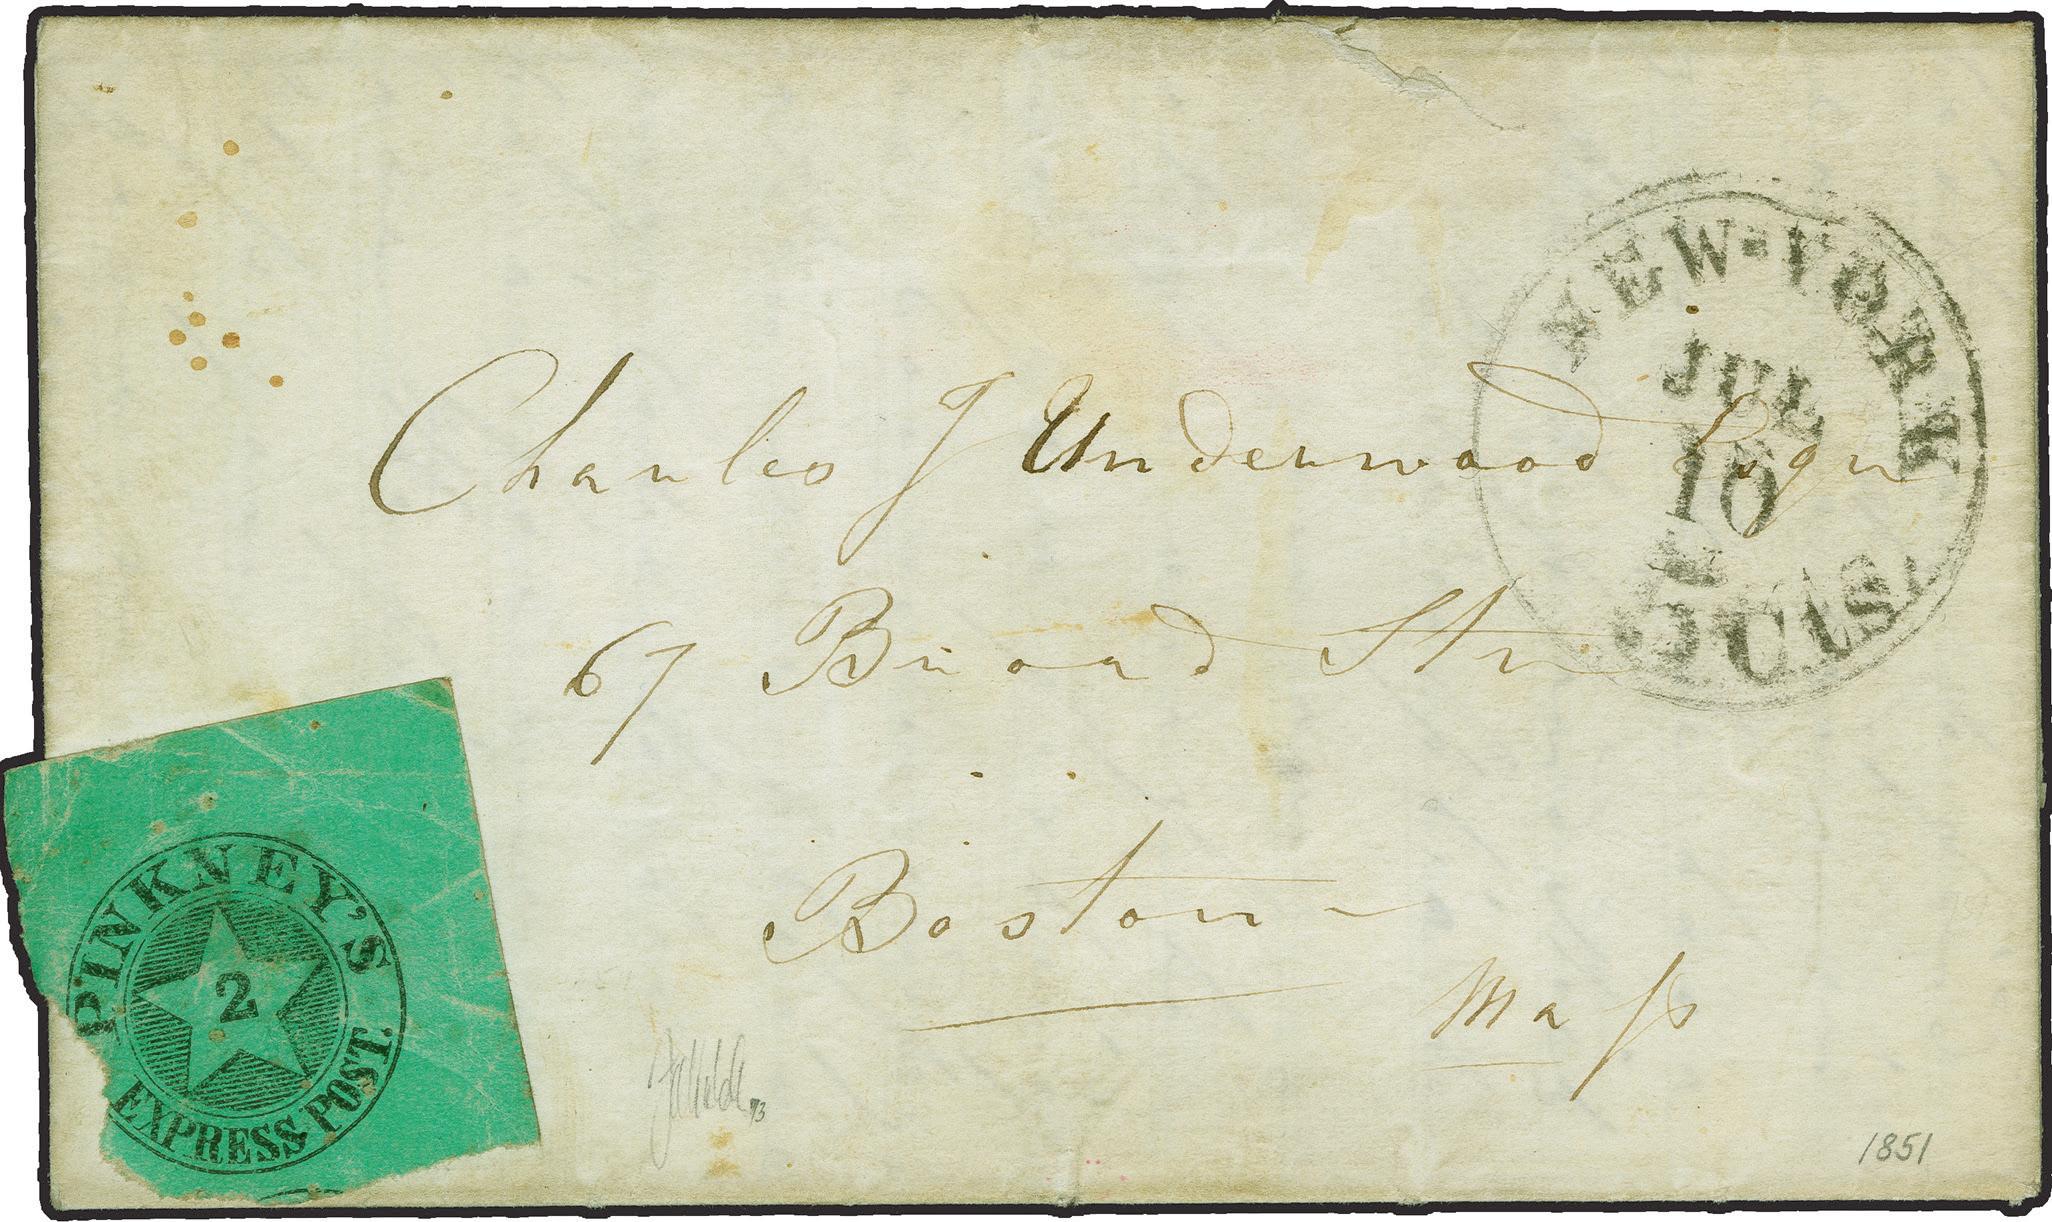 NEW-YORK
JUL
10
Cts.
Charles J Underwood Esqr
67 Broad Str
Boston
Mass
PINKNEY'S
2
EXPRESS POST.
1851